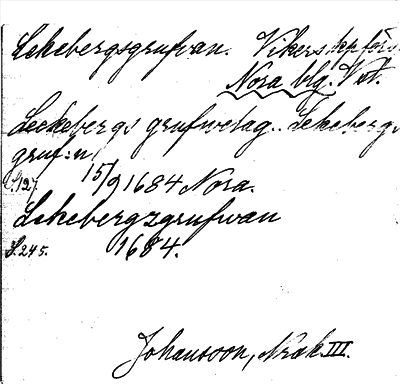 Lekebergsgrufvan. Vikers kpförs.
Nora blg. Vstm.
Leekebergs grufwelag. Lekebergs
gruf:n
S. 127. 15/9 1684 Nora.
Lekebergzgrufwan
S. 245. 1684.
Johansson, Norask. III.